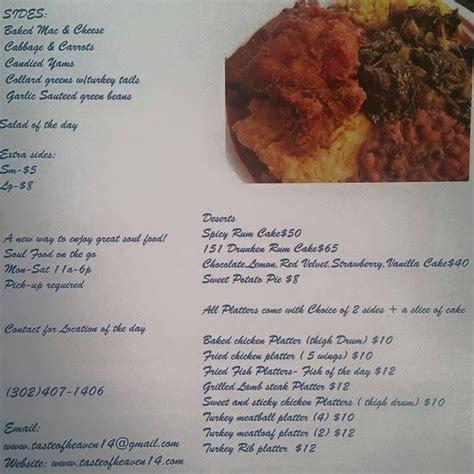 SIDES:
Baked Mac & Cheese
Cabbage & Carrots
Candied Yams
Collard greens w/turkey tails
Garlic Sauteed green beans
Salad of the day
Extra sides:
Sm-$5
Lg-$8
A new way to enjoy great soul food!
Soul Food on the go
Mon-Sat 11a-6p
Pick-up required
Contact for Location of the day
(302)407-1406
Email:
www.tasteofheaven14@gmail.com
Website: www.tasteofheaven14.com
Deserts
Spicy Rum Cake$50
151 Drunken Rum Cake$65
Chocolate,Lemon,Red Velvet,Strawberry,Vanilla Cake$40
Sweet Potato Pie $8
All Platters come with Choice of 2 sides + a slice of cake
Baked chicken Platter (thigh Drum) $10
Fried chicken platter ( 5 wings) $10
Fried Fish Platters- Fish of the day $12
Grilled Lamb steak Platter $12
Sweet and sticky chicken Platters ( thigh drum) $10
Turkey meatball platter (4) $10
Turkey meatloaf platter (2) $12
Turkey Rib platter  $12